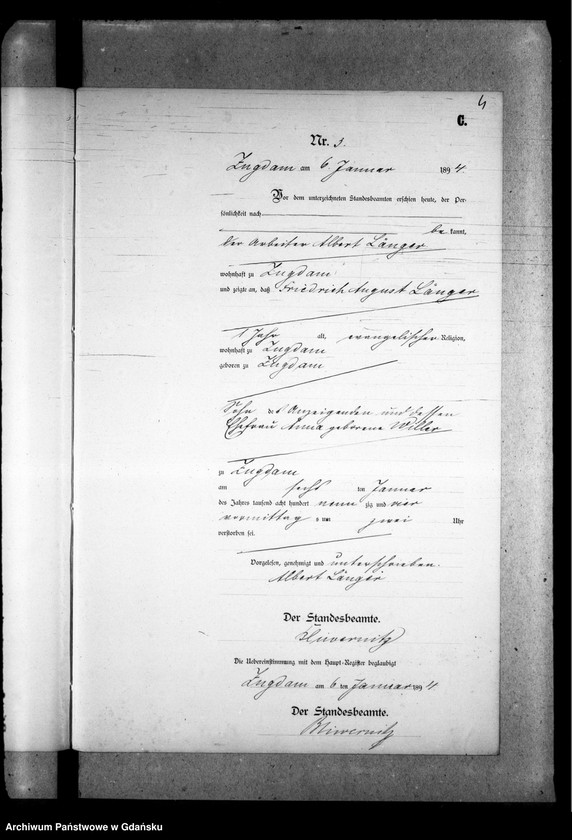 4
C.
Nr. 3.
Zugdam am 6 Januar 1894.
Vor dem unterzeichneten Standesbeamten erschien heute, der Per-
sönlichkeit nach
be kannt,
der Arbeiter Albert Länger
wohnhaft zu Zugdam
und zeigte an, daß Friedrich August Länger
1 Jahr alt, evangelischer Religion,
wohnhaft zu Zugdam
geboren zu Zugdam
Sohn des Anzeigenden und dessen
Ehefrau Anna geborene Willer
zu Zugdam
am sechs ten Januar
des Jahres tausend acht hundert neun zig und vier
vormittag s um zwei Uhr
verstorben sei.
Vorgelesen, genehmigt und unterschrieben.
Albert Länger
Der Standesbeamte.
Die Uebereinstimmung mit dem Haupt-Register beglaubigt
Zugdam am 6 ten Januar 1894
Der Standesbeamte.
Archiwum Państwowe w Gdańsku